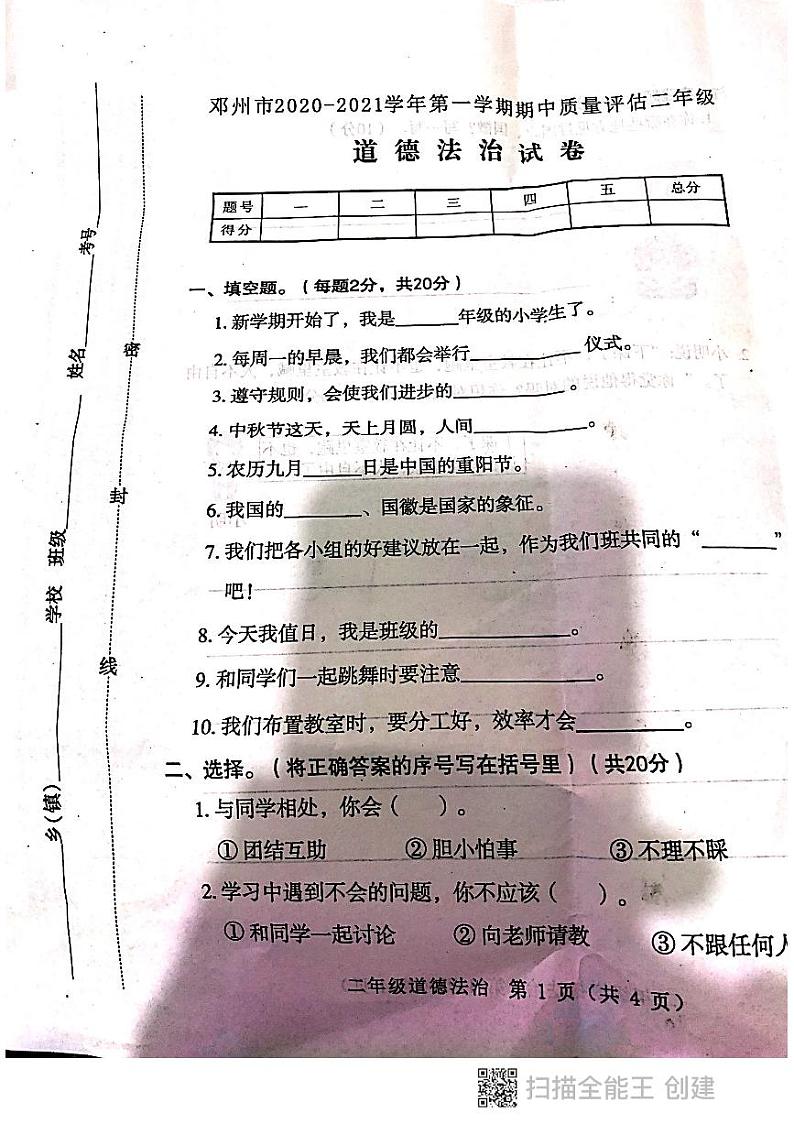 邓州市2020-2021学年第一学期期中质量评估二年级
道德法治试卷
题号 一 二 三 四 五 总分
得分
一、填空题。（每题2分，共20分）
1. 新学期开始了，我是______年级的小学生了。
2. 每周一的早晨，我们都会举行__________仪式。
3. 遵守规则，会使我们进步的__________。
4. 中秋节这天，天上月圆，人间__________。
5. 农历九月______日是中国的重阳节。
6. 我国的________、国徽是国家的象征。
7. 我们把各小组的好建议放在一起，作为我们班共同的“________”
吧！
8. 今天我值日，我是班级的____________。
9. 和同学们一起跳舞时要注意____________。
10. 我们布置教室时，要分工好，效率才会__________。
二、选择。（将正确答案的序号写在括号里）（共20分）
1. 与同学相处，你会（ ）。
①团结互助 ②胆小怕事 ③不理不睬
2. 学习中遇到不会的问题，你不应该（ ）。
①和同学一起讨论 ②向老师请教 ③不跟任何人
二年级道德法治 第1页（共4页）
乡（镇）________学校 班级________姓名________考号________
密 封 线
扫描全能王 创建